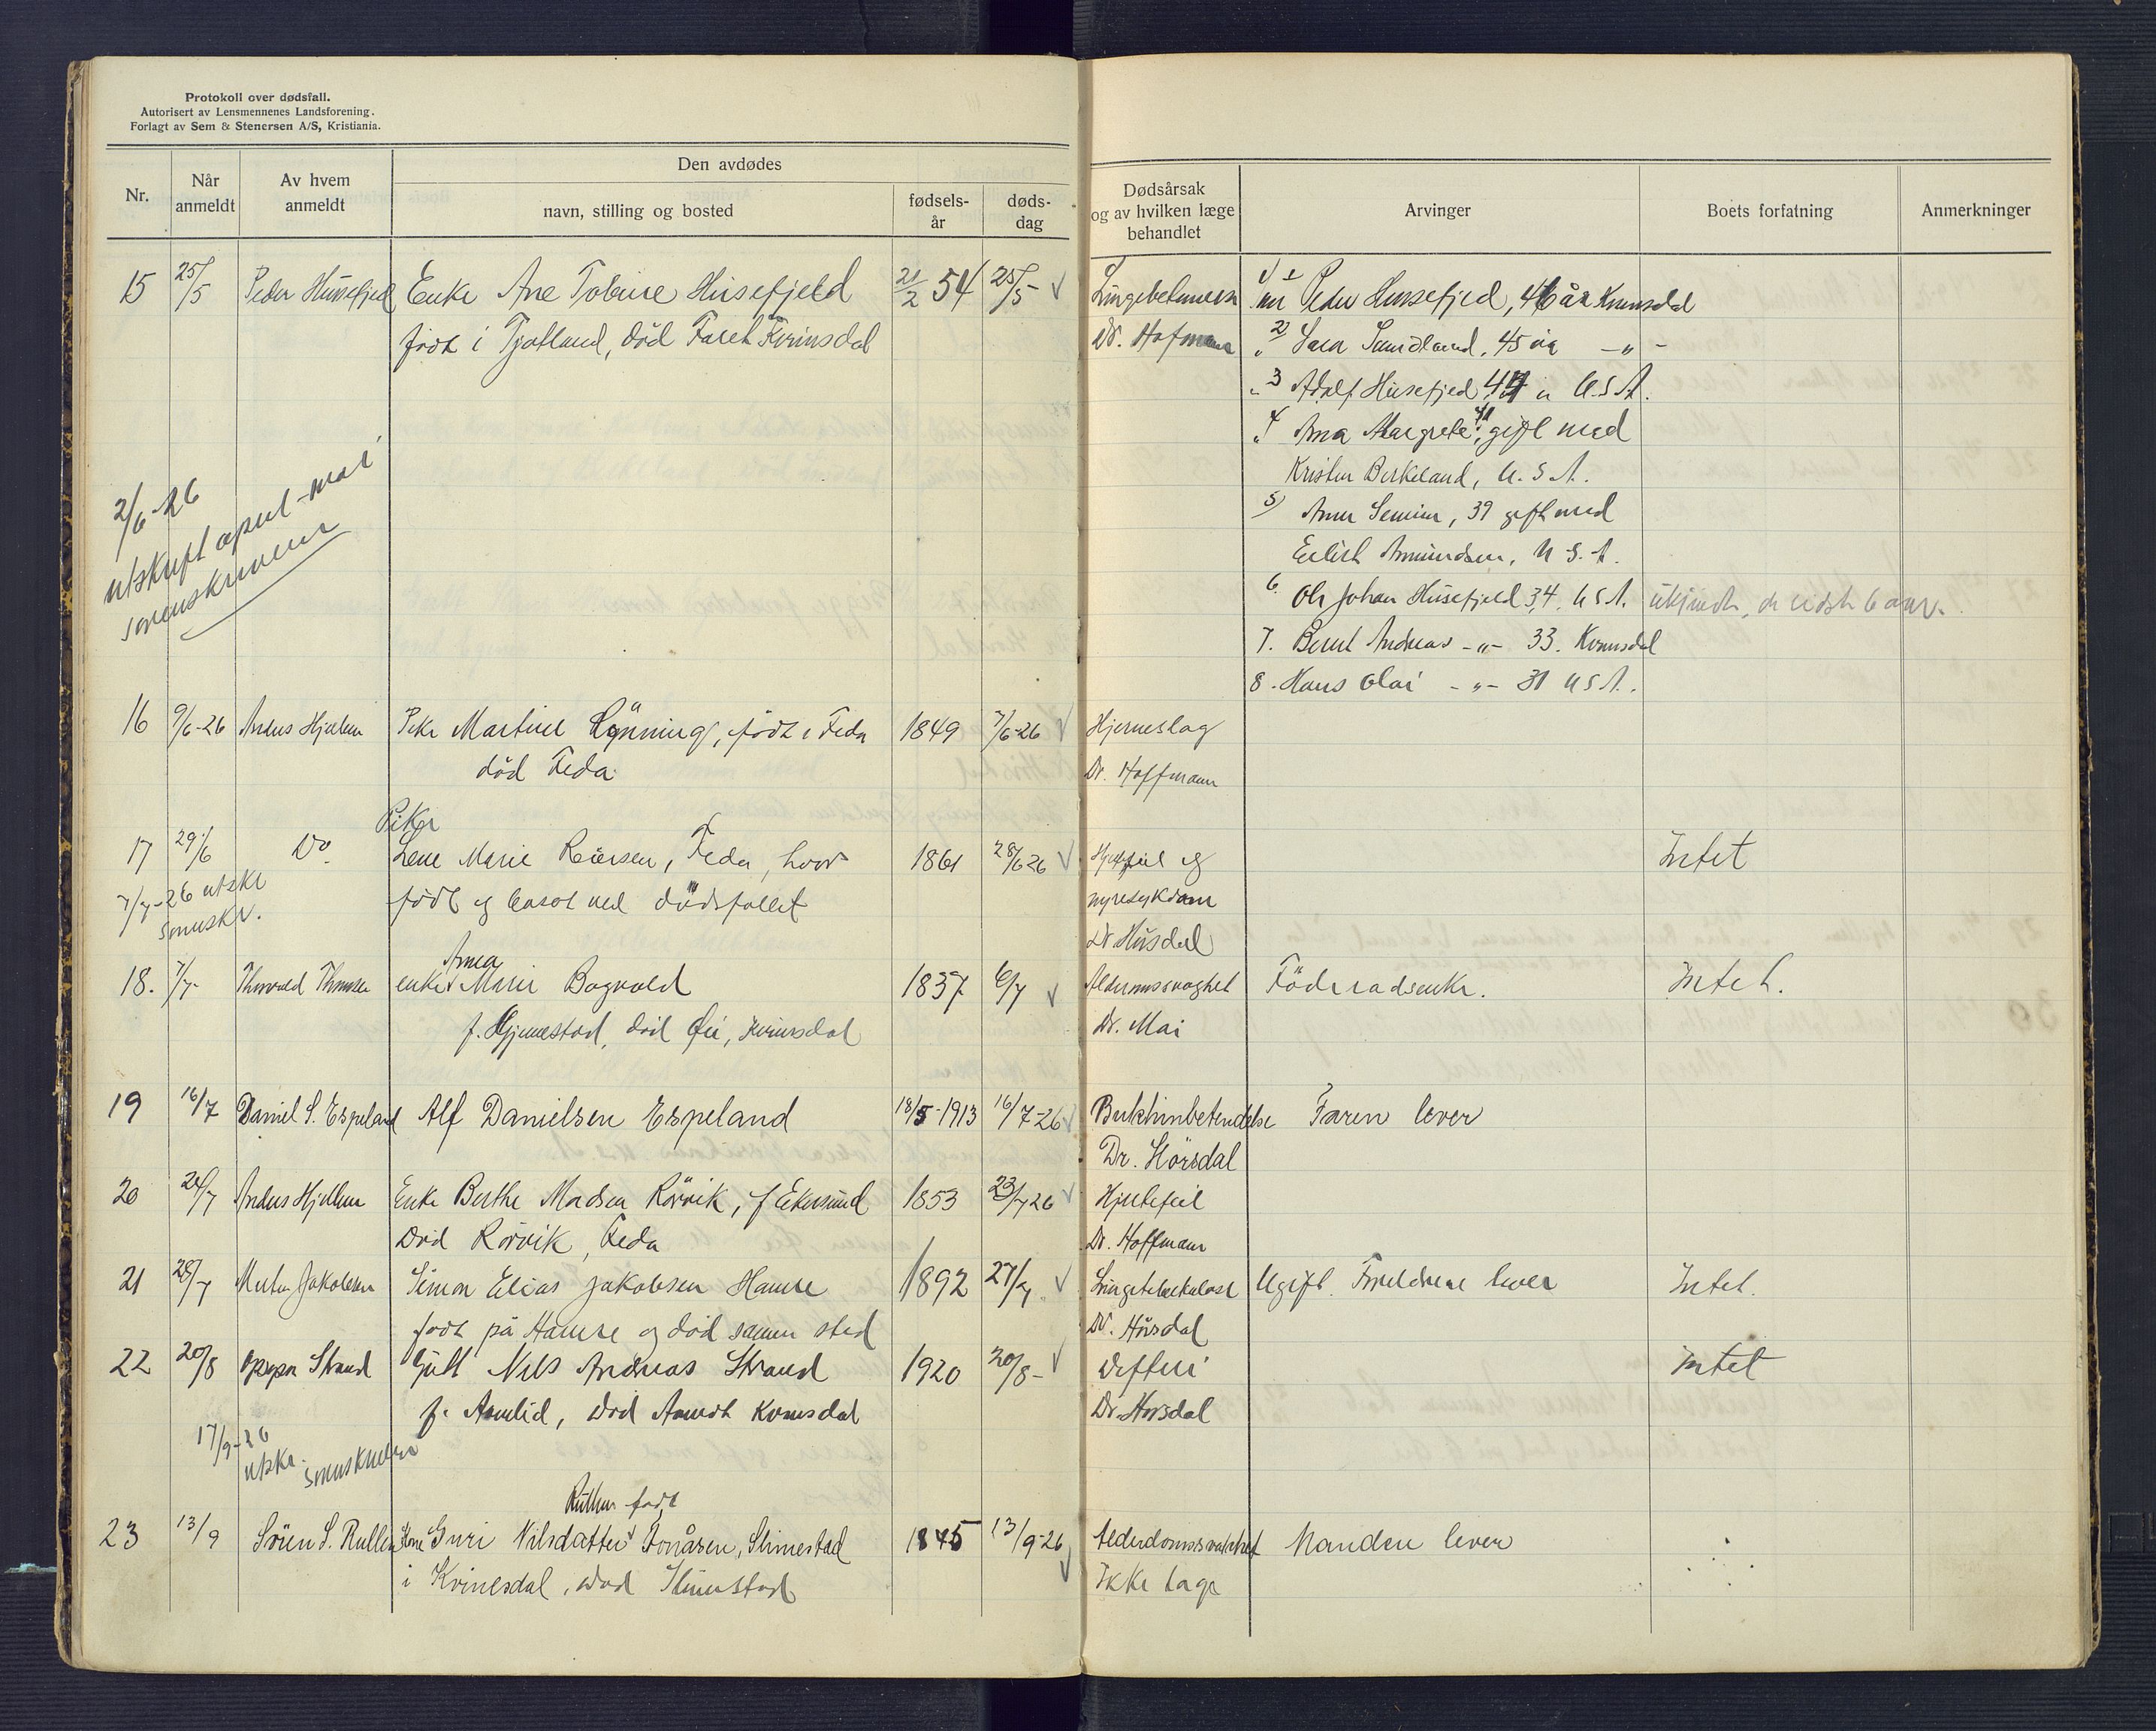 Protokoll over dødsfall.
Autorisert av Lensmennenes Landsforening.
Forlagt av Sem & Stenersen A/S, Kristiania.
Nr.
Når anmeldt
Av hvem anmeldt
Den avdødes
navn, stilling og bosted
fødsels-år
døds-dag
Dødsårsak og av hvilken læge behandlet
Arvinger
Boets forfatning
Anmerkninger
15 25/5 Peder Husefjeld Enke Ane Tobine Husefjeld 21/2 54 25/5 Lungebetennelse 1/ Peder Husefjed, 46 år Kvinesdal
født i Fjotland, død Faret Kvinsdal Dr. Hofmann 2) Sara Sandland, 45 år — " —
3 Adolf Husefjed 44 " U.S.A.
4 Ana Margrete 41, gift med
Kristen Birkeland, U.S.A.
2/6-26 5) Anne Semine, 39 gift med
utskrift april-mai Amundsen, U.S.A.
sorenskriveren 6. Ole Johan Husefjeld 34, U.S.A. ukjendt, de sidste 6 aar.
7. Bernt Andreas -"- 33. Kvinesdal
8. Hans Olai -"- 31 U.S.A.
16 9/6-26 Anders Hjellem Pike Martine Lönning, født i Feda 1849 7/6-26 Hjerneslag
død Feda Dr. Hoffmann
Pike
17 29/6 Do. Lene Marie Reiersen, Feda, hvor 1861 28/6 26 Hjertefeil og Intet
7/7-26 utskr. født og bosat ved dødsfallet nyresykdom
sorenskr. Dr Hörsdal
Anna
18. 7/7- Thorvald Thomsen enke Marie Bogvald 1837 6/7 Alderdomssvaghet Föderadsenke. Intet.
f. Gjemlestad, död Øie, Kvinesdal Dr. Mai
19 16/7 Daniel S. Espeland Alf Danielsen Espeland 18/5-1913 16/7-26 Bukhinbetendelse Faren lever
Dr. Hörsdal
20 24/7 Anders Hjellem Enke Berthe Madsen Rörvik, f Ekersund 1853 23/7 26 Hjertefeil
Död Rörvik, Feda Dr. Hoffmann
21 28/7 Jakobsen Simon Elias Jakobsen Hamre 1892 27/7 Lungetuberkulose Ugift. Foreldrene lever Intet.
født på Hamre og död samme sted Dr. Hörsdal
22 20/8 Strand Gutt Nils Andreas Strand 1920 20/8- Difteri Intet
f. Aamlid, död Aamodt Kvinesdal Dr. Hørsdal
17/9-26
utskr. sorenskriveren
født
23 13/9 Søren S. Kone Guri Nilsdatter Jonåsen, Slimestad 1845 13/9-26 Alderdomssvakhet Manden lever
i Kvinesdal, død Slimestad Ikke læge